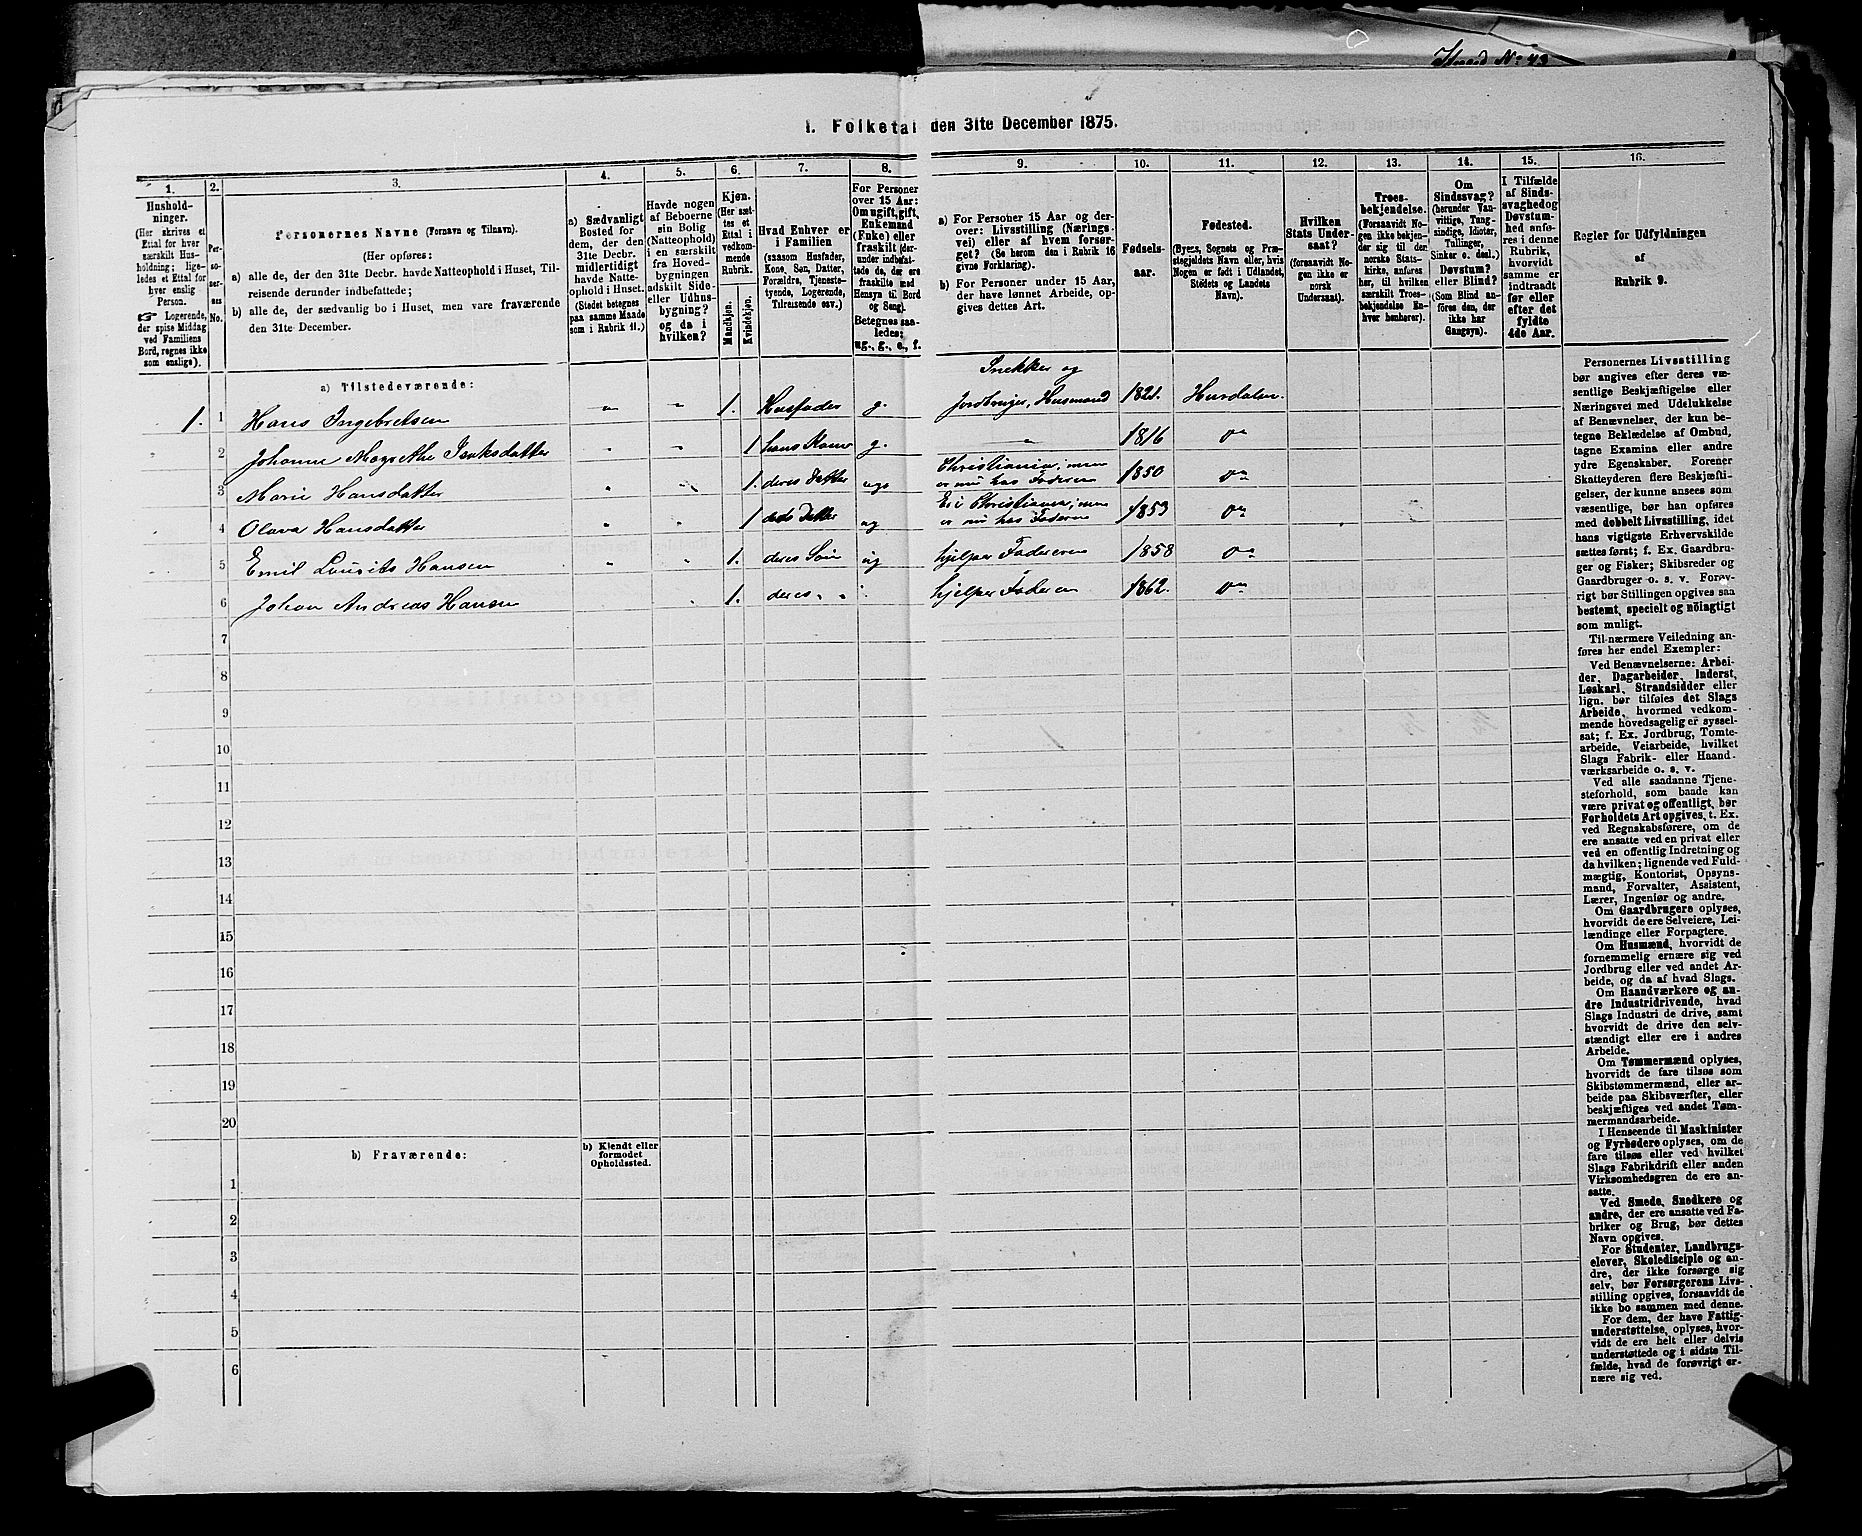 Kreds No. 43
1. Folketal den 31te December 1875.
1. 2. 3. 4. 5. 6. 7. 8. 9. 10. 11. 12. 13. 14. 15. 16.
Husholdninger.
(Her skrives et
Ettal for hver
særskilt Husholdning; ligeledes
et Ettal for
hver enslig
Person.
☞ Logerende,
der spise Middag
ved Familiens
Bord, regnes ikke
som enslige).
Personernes
No.
Personernes Navne (Fornavn og Tilnavn).
(Her opføres:
a) alle de, der den 31te Decbr. havde Natteophold i Huset, Tilreisende
derunder indbefattede;
b) alle de, der sædvanlig bo i Huset, men vare fraværende
den 31te December.
a) Sædvanligt
Bosted for
dem, der den
31te Decbr.
midlertidigt
havde Natteophold
i Huset.
(Stedet betegnes
paa samme Maade
som i Rubrik 11.)
Havde nogen
af Beboerne
sin Bolig
(Natteophold)
i en særskilt
fra Hovedbygningen
adskilt Side-
eller Udhusbygning?
og da i
hvilken?
Kjøn.
(Her sættes
et
Ettal i
vedkommende
Rubrik.
Mandkjøn.
Kvindekjøn.
Hvad Enhver er
i Familien
(saasom Husfader,
Kone, Søn, Datter,
Forældre, Tjenestetyende,
Logerende,
Tilreisende osv.)
For Personer
over 15 Aar:
Om ugift, gift,
Enkemand
(Enke) eller
fraskilt (derunder
indbefattede
de, der ere
fraskilte med
Hensyn til Bord
og Seng).
Betegnes saaledes:
ug., g., e., f.
a) For Personer 15 Aar og derover:
Livsstilling (Næringsvei)
eller af hvem forsørget?
(Se herom den i Rubrik 16
givne Forklaring).
b) For Personer under 15 Aar,
der have lønnet Arbeide, opgives
dettes Art.
Fødselsaar.
Fødested.
(Byens, Sognets og Præstegjeldets
Navn eller, hvis
Nogen er født i Udlandet,
Stedets og Landets
Navn).
Hvilken
Stats Undersaat?
(forsaavidt Nogen
ikke er
norsk
Undersaat).
Troesbekjendelse.
(Forsaavidt Nogen
ikke bekjender
sig til den
norske Statskirke,
anføres
her, til hvilken
særskilt Troesbekjendelse
Enhver
henhører).
Om
Sindssvag?
(herunder Vanvittige,
Tungsindige,
Idioter,
Tullinger,
Sinker o. desl.)
Døvstum?
eller Blind?
(Som Blind anføres
den, der
ikke har
Gangsyn).
I Tilfælde
af Sindssvaghed
og
Døvstumhed
anføres
i denne
Rubrik,
hvorvidt
samme er
indtraadt
før eller
efter det
fyldte
4de Aar.
Regler for Udfyldningen
af
Rubrik 9.
a) Tilstedeværende:
Snekker og
1. 1 Hans Ingebretsen „ „ 1. Husfader g. Jordbruger, Husmand 1821. Hurdalen.
2 Johanne Magrethe Isaksdatter „ „ 1 hans Kone g. „ 1816 Do
Christiania; men
3 Marie Hansdatter „ „ 1. deres Datter ugr er nu hos Faderen 1850 Do
Er i Christiania; men
4 Olava Hansdatter „ „ 1 deres Datter ug er nu hos Faderen 1853 Do
5 Emil Lourits Hansen „ „ 1. deres Søn ug hjelper Faderen 1858 Do
6 Johan Andreas Hansen „ 1. deres „ „ hjelper Faderen 1862. Do
7
8
9
10
11
12
13
14
15
16
17
18
19
20
b) Fraværende:
b) Kjendt eller
formodet
Opholdssted.
1
2
3
4
5
6
Personernes Livsstilling
bør angives efter deres væsentlige
Beskjæftigelse eller
Næringsvei med Udelukkelse
af Benævnelser, der kun betegne
Beklædelse af Ombud,
tagne Examina eller andre
ydre Egenskaber. Forener
Skatteyderen flere Beskjæftigelser,
der kunne ansees som
væsentlige, bør han opføres
med dobbelt Livsstilling, idet
hans vigtigste Erhvervskilde
sættes først; f. Ex. Gaardbruger
og Fisker; Skibsreder og
Gaardbruger o. s. v. Forøvrigt
bør Stillingen opgives saa
bestemt, specielt og nøiagtigt
som muligt.
Til nærmere Veiledning anføres
her endel Exempler:
Ved Benævnelserne: Arbeider,
Dagarbeider, Inderst,
Løskarl, Strandsidder eller
lign. bør tilføies det Slags
Arbeide, hvormed vedkommende
hovedsagelig er sysselsat;
f. Ex. Jordbrug, Tomtearbeide,
Veiarbeide, hvilket
Slags Fabrik- eller Haandværksarbeide
o. s. v.
Ved alle saadanne Tjenesteforhold,
som baade kan
være privat og offentligt, bør
Forholdets Art opgives, t. Ex.
ved Regnskabsførere, om de
ere ansatte ved en privat eller
ved en offentlig Indretning og
da hvilken; lignende ved Fuldmægtig,
Kontorist, Opsynsmand,
Forvalter, Assistent,
Lærer, Ingeniør og andre.
Om Gaardbrugere oplyses,
hvorvidt de ere Selveiere, Leilændinge
eller Forpagtere.
Om Husmænd, hvorvidt de
fornemmelig ernære sig ved
Jordbrug eller ved andet Arbeide,
og da af hvad Slags.
Om Haandværkere og andre
Industridrivende, hvad
Slags Industri de drive, samt
hvorvidt de drive den selvstændigt
eller ere i andres
Arbeide.
Om Tømmermænd oplyses,
hvorvidt de fare tilsøs som
Skibstømmermænd, eller arbeide
paa Skibsværfter, eller
beskjæftiges ved andet Tømmermandsarbeide.
I Henseende til Maskinister
og Fyrbødere oplyses, om de
fare tilsøs eller ved hvilket
Slags Fabrikdrift eller anden
Virksomhedsgren de ere ansatte.
Ved Smede, Snedkere og
andre, der ere ansatte ved Fabriker
og Brug, bør dettes
Navn opgives.
For Studenter, Landbrugselever,
Skoledisciple og andre,
der ikke forsørge sig
selv, bør Forsørgerens Livsstilling
opgives, forsaavidt de
ikke bo sammen med denne.
For dem, der have Fattigunderstøttelse,
oplyses, hvorvidt
de ere helt eller delvis
understøttede og i sidste Tilfælde,
hvad de forøvrigt ernære
sig ved.